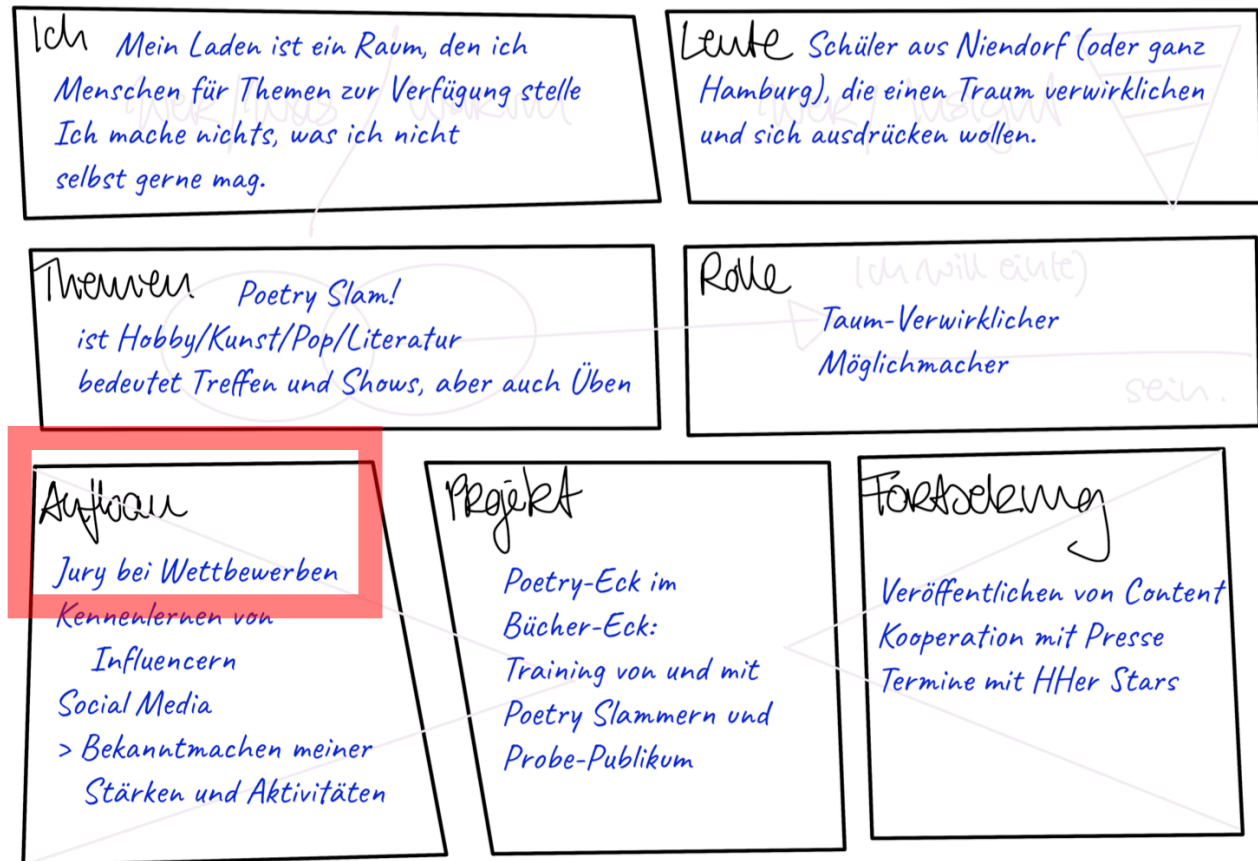 Ich Mein Laden ist ein Raum, den ich
Menschen für Themen zur Verfügung stelle
Ich mache nichts, was ich nicht
selbst gerne mag.
Leute Schüler aus Niendorf (oder ganz
Hamburg), die einen Traum verwirklichen
und sich ausdrücken wollen.
Themen Poetry Slam!
ist Hobby/Kunst/Pop/Literatur
bedeutet Treffen und Shows, aber auch Üben
Rolle
Taum-Verwirklicher
Möglichmacher
sein.
Aufbau
Jury bei Wettbewerben
Kennenlernen von
Influencern
Social Media
> Bekanntmachen meiner
Stärken und Aktivitäten
Projekt
Poetry-Eck im
Bücher-Eck:
Training von und mit
Poetry Slammern und
Probe-Publikum
Fortsetzung
Veröffentlichen von Content
Kooperation mit Presse
Termine mit HHer Stars